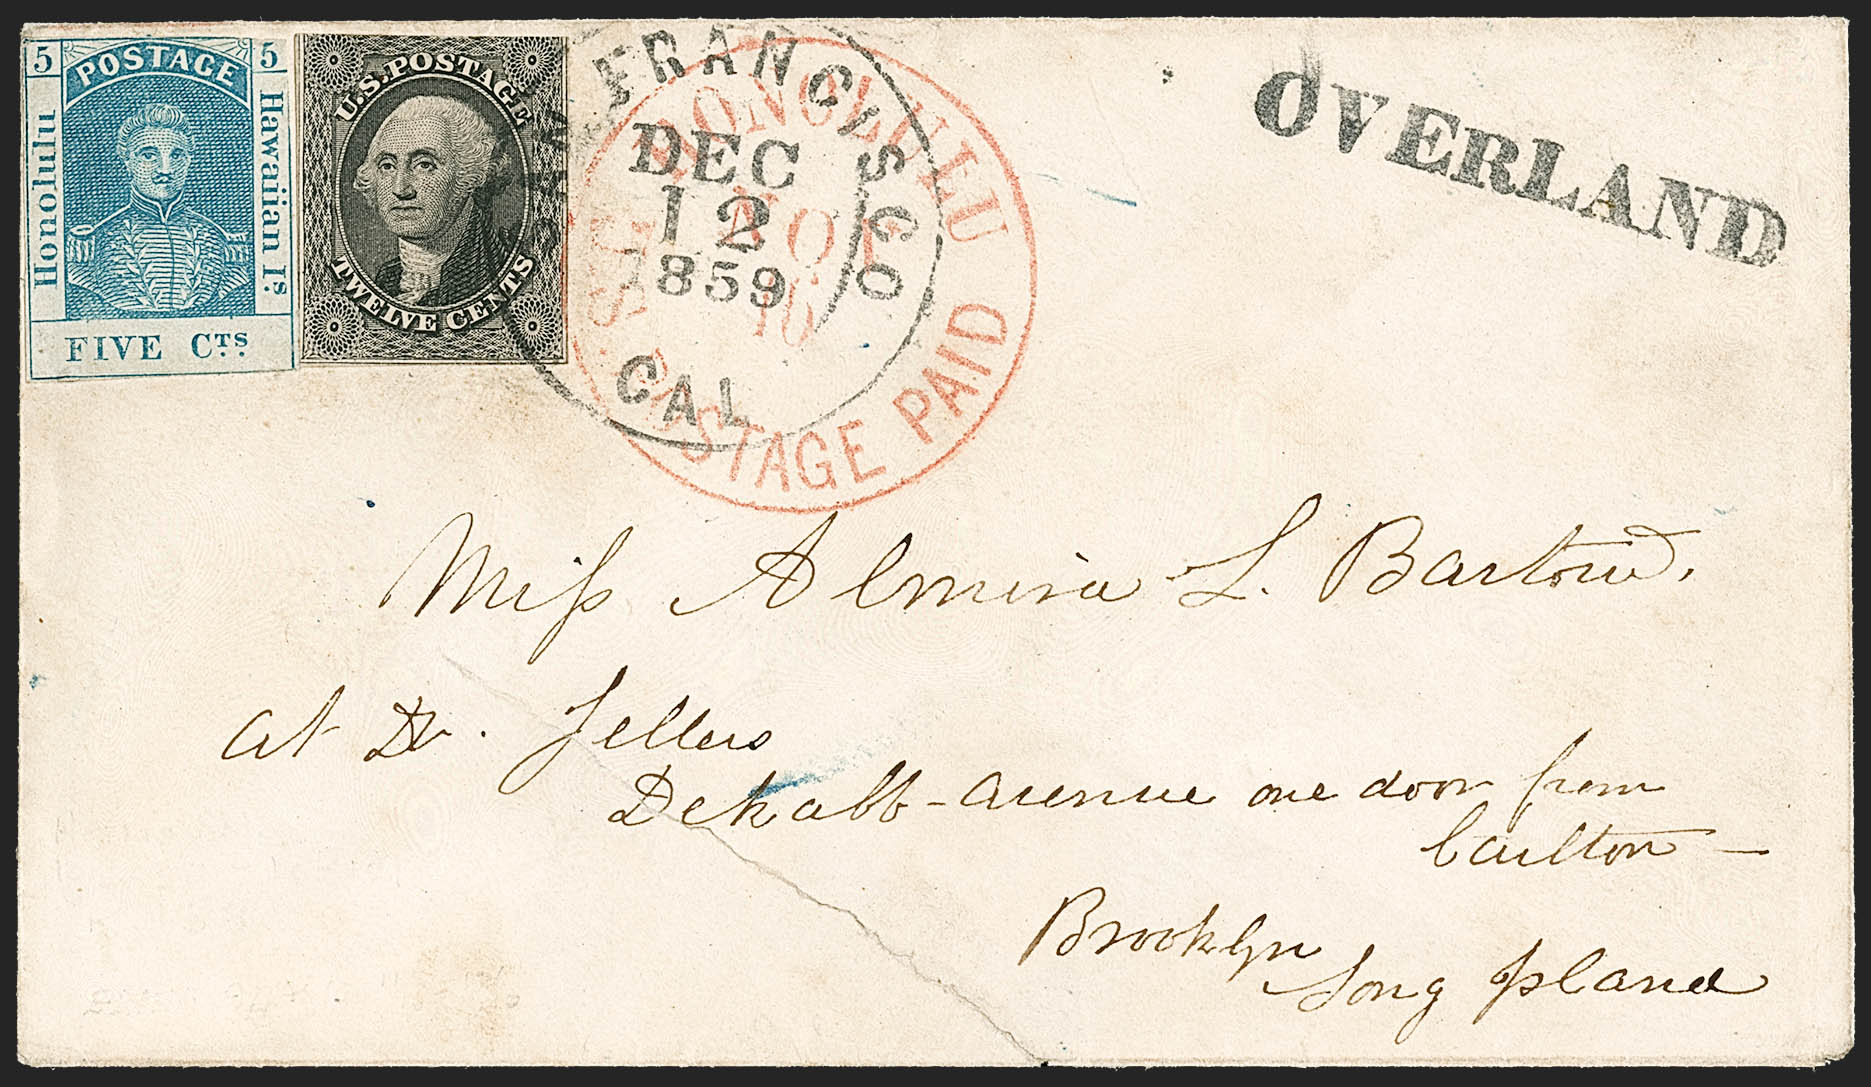 5 POSTAGE 5
Honolulu
Hawaiian Is.
FIVE CTS.
U.S. POSTAGE
TWELVE CENTS
SAN FRANCISCO
DEC
12
1859
CAL
HONOLULU
NOV
16
U.S. POSTAGE PAID
OVERLAND
Miss Almira L. Bartow.
at Dr. Fellers
Dekalb-avenue one door from
Carlton —
Brooklyn
Long Island